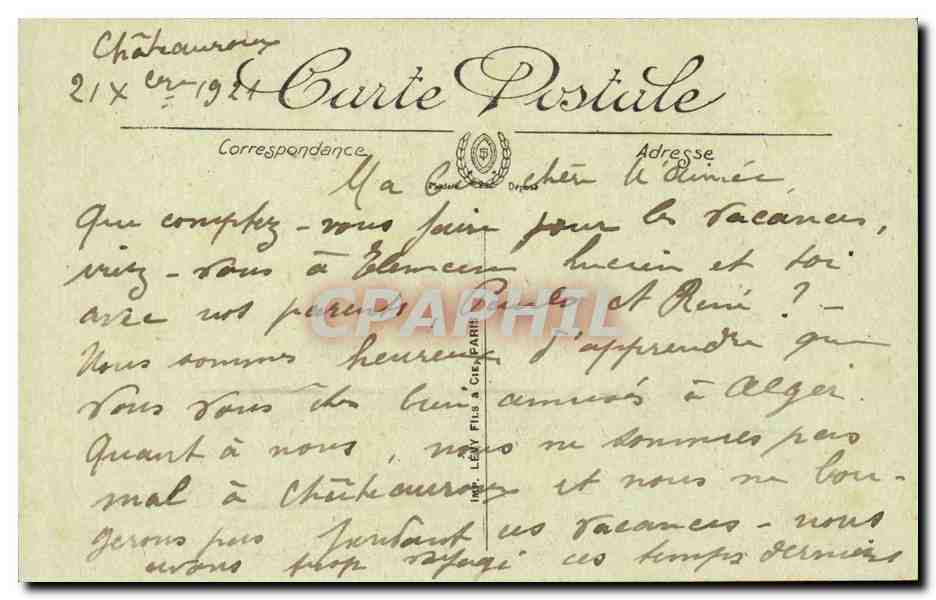 Châteauroux
21 Xbre 1921
Carte Postale
Correspondance
Adresse
Ma chère Aimée,
Que comptez-vous faire pour les vacances,
irez-vous à Tlemcen Lucien et toi
avec nos parents Paulo et René ? -
CPAPHIL
Nous sommes heureux d'apprendre que
vous vous êtes bien amusés à Alger.
Quant à nous, nous ne sommes pas
mal à Châteauroux et nous ne bou-
gerons pas pendant ces vacances - nous
avons trop voyagé ces temps derniers
IMP. LÉVY FILS & CIE, PARIS